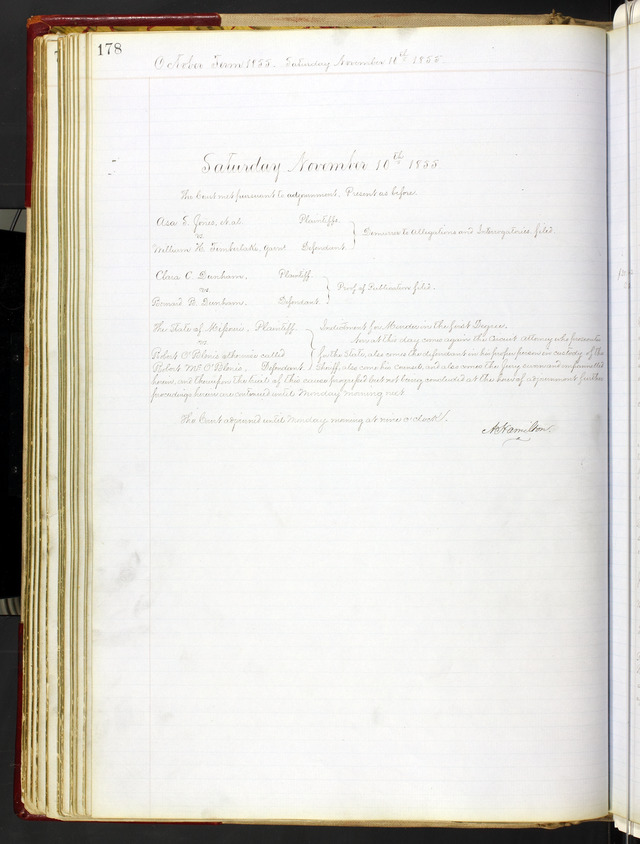 178
October Term 1855. Saturday November 10th 1855.
Saturday November 10th 1855
The Court met pursuant to adjournment. Present as before.
Asa E. Jones, et al. Plaintiffs
vs
William H. Timberlake, Garnt. Defendant
Demurrer to Allegations and Interrogatories filed.
Clara C. Dunham, Plaintiff
vs
Defendant
Proof of Publication filed.
The State of Missouri, Plaintiff
vs
Robert O'Blenis otherwise called
Robert McO'Blenis, Defendant
Indictment for Murder in the first Degree.
Now at this day come again the Circuit Attorney who prosecutes
for the State, also comes the defendant in his proper person in custody of the
Sheriff, also come his counsel, and also comes the jury sworn and empannelled
herein, and thereupon the trial of this cause progressed but not being concluded at the hour of adjournment further
proceedings herein are continued until Monday morning next.
The Court adjourned until Monday morning at nine o'clock.
A Hamilton